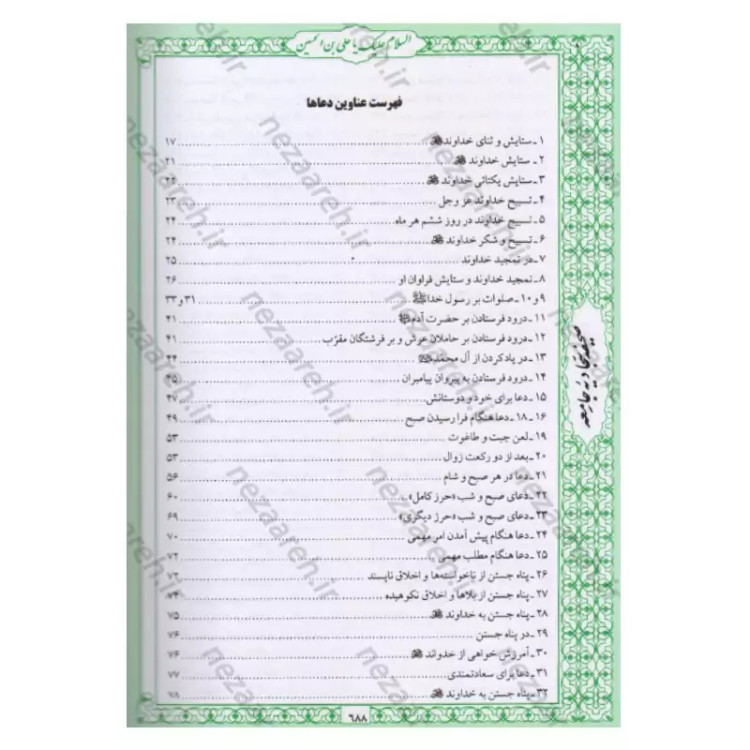 السلام علیک یا علی بن الحسین
فهرست عناوین دعاها
۱ ـ ستایش و ثنای خداوند ۱۷
۲ ـ ستایش خداوند ۲۱
۳ ـ ستایش یکتائی خداوند ۲۲
۴ ـ تسبیح خداوند عز وجل ۲۳
۵ ـ تسبیح خداوند در روز ششم هر ماه ۲۴
۶ ـ تسبیح و شکر خداوند ۲۴
۷ ـ در تمجید خداوند ۲۵
۸ ـ تمجید خداوند و ستایش فراوان او ۲۶
۹ و ۱۰ ـ صلوات بر رسول خدا ﷺ ۳۱ و ۳۳
۱۱ ـ درود فرستادن بر حضرت آدم ۴۱
۱۲ ـ درود فرستادن بر حاملان عرش و بر فرشتگان مقرّب ۴۱
۱۳ ـ در یاد کردن از آل محمد ۴۴
۱۴ ـ درود فرستادن به پیروان پیامبران ۴۵
۱۵ ـ دعا برای خود و دوستانش ۴۷
۱۶ ـ ۱۸ ـ دعا هنگام فرا رسیدن صبح ۴۹
۱۹ ـ لعن جبت و طاغوت ۵۳
۲۰ ـ بعد از دو رکعت زوال ۵۳
۲۱ ـ دعا در هر صبح و شام ۵۶
۲۲ ـ دعای صبح و شب «حرز کامل» ۶۰
۲۳ ـ دعای صبح و شب «حرز دیگری» ۶۹
۲۴ ـ دعا هنگام پیش آمدن امر مهمی ۷۰
۲۵ ـ دعا هنگام مطلب مهمی ۷۲
۲۶ ـ پناه جستن از ناخواسته‌ها و اخلاق ناپسند ۷۳
۲۷ ـ پناه جستن از بلاها و اخلاق نکوهیده ۷۴
۲۸ ـ پناه جستن به خداوند ۷۵
۲۹ ـ در پناه جستن ۷۶
۳۰ ـ آمرزش خواهی از خدواند ۷۶
۳۱ ـ دعا برای سعادتمندی ۷۷
۳۲ ـ پناه جستن به خداوند ۷۸
صحیفه سجادیه جامعه
۶۸۸
nezaareh.ir